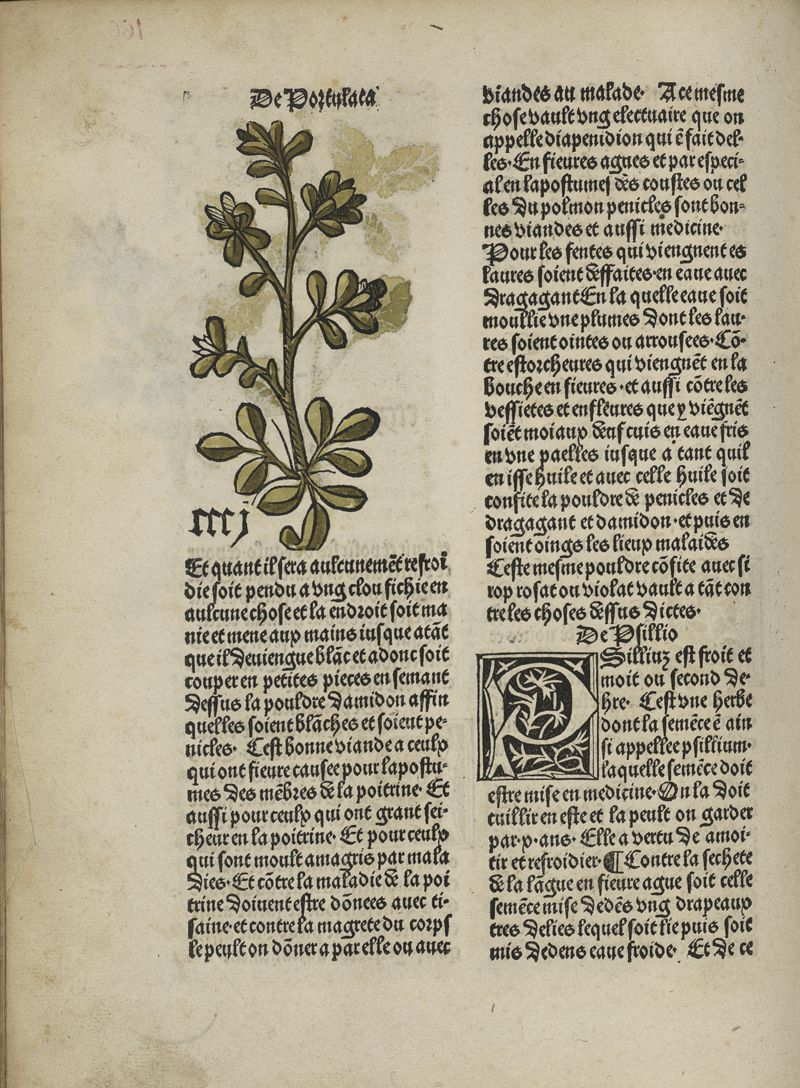 De Portulaca
cccj
Et quant il sera aulcunemēt refroi
die soit pendu a vng clou fichie en
aulcune chose et la endroit soit ma
nie et mene aux mains iusque atāt
que il deuiengue blāc et adonc soit
couper en petites pieces en semant
dessus la pouldre damidon affin
quelles soient blāches et soient pe-
nicles· Cest bonne viande a ceulx
qui ont fieure causee pour lapostu-
mes des mēbres de la poitrine· Et
aussi pour ceulx qui ont grant sei-
cheur en la poitrine· Et pour ceulx
qui sont moult amagris par mala
dies· Et cōtre la maladie de la poi
trine doiuent estre dōnees auec ti-
saine·et contre la magrete du corps
le peult on dōner a par elle ou auec
viandes au malade· A ce mesme
chose vault vng electuaire que on
appelle diapenidion qui ē fait del-
les·En fieures agues et par especi-
al en lapostumes dēs coustes ou cel
les du polmon penicles sont bon-
nes viandes et aussi medicine·
Pour les fentes qui viengnent es
laures soient deffaites·en eaue auec
dragagant En la quelle eaue soit
moullie vne plumes dont les lau-
res soient ointes ou arrousees·Cō-
tre estorcheures qui viengnēt en la
bouche en fieures·et aussi cōtre les
vessietes et enfleures que y viēgnēt
soiēt moiaux deuf cuis en eaue fris
en vne paelles iusque a tant quil
en isse huile et auec celle huile soit
confite la pouldre de penicles et de
dragagant et damidon·et puis en
soient oings les lieux malaides
Ceste mesme pouldre cōfite auec si
rop rosat ou violat vault a tāt con
tre les choses dessus dictes·
De Psillio
PSilliuʒ est froit et
moit ou second de-
hre· Cest vne herbe
dont la semēce ē ain
si appellee psillium·
laquelle semēce doit
estre mise en medicine·On la doit
cuillir en este et la peult on garder
par·x·ans· Elle a vertu de amoi-
tir et refroidier·¶Contre la sechete
de la lāgue en fieure ague soit celle
semēce mise dedēs vng drapeaux
tres delies lequel soit lie puis soit
mis dedens eaue froide· Et de ce